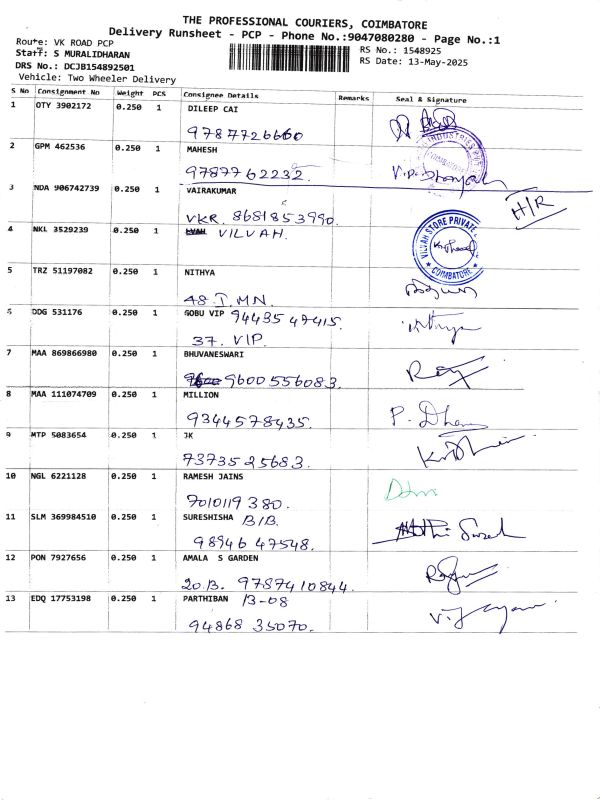 THE PROFESSIONAL COURIERS, COIMBATORE
Delivery Runsheet - PCP - Phone No.:9047080280 - Page No.:1
Route: VK ROAD PCP
Staff: S MURALIDHARAN
DRS No.: DCJB154892501
Vehicle: Two Wheeler Delivery
RS No.: 1548925
RS Date: 13-May-2025
S No Consignment No Weight PCS Consignee Details Remarks Seal & Signature
1 OTY 3902172 0.250 1 DILEEP CAI
9787726660
2 GPM 462536 0.250 1 MAHESH
9787762232.
COIMBATORE
3 NDA 906742739 0.250 1 VAIRAKUMAR
VKR. 8681853990.
H/R
4 NKL 3529239 0.250 1 VILVAH.
VILVAH STORE PRIVATE
COIMBATORE
5 TRZ 51197082 0.250 1 NITHYA
48 I. MN.
6 DDG 531176 0.250 1 GOBU VIP 94435 47415.
37. VIP.
7 MAA 869866980 0.250 1 BHUVANESWARI
9600556083.
8 MAA 111074709 0.250 1 MILLION
9344578435.
P. Dham
9 MTP 5083654 0.250 1 JK
7373525683.
10 NGL 6221128 0.250 1 RAMESH JAINS
7010119380.
11 SLM 369984510 0.250 1 SURESHISHA B/B.
98946 47548.
12 PON 7927656 0.250 1 AMALA S GARDEN
20.B. 9787410844.
13 EDQ 17753198 0.250 1 PARTHIBAN B-08
94868 35070.